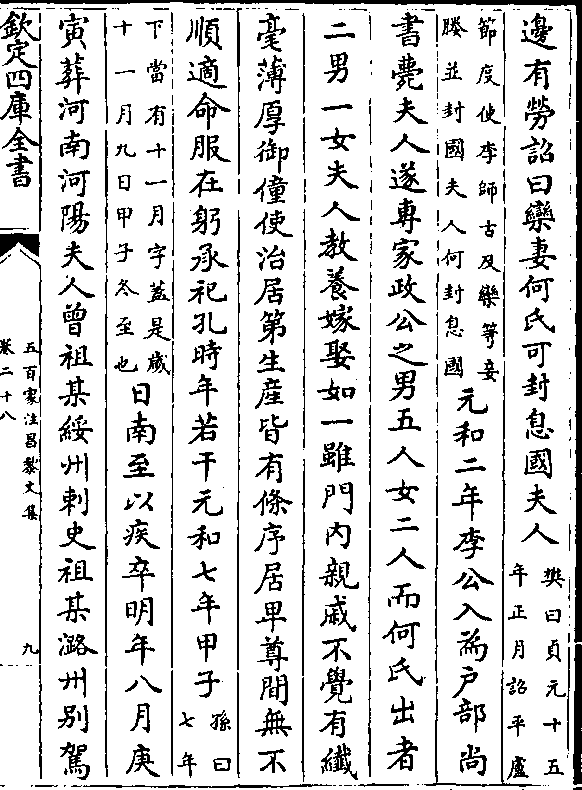 邊有勞詔曰欒妻何氏可封息國夫人樊曰貞元十五年正月詔平盧
節度使李師古及欒等妾媵並封國夫人何封息國元和二年李公入為户部尚
書薨夫人遂專家政公之男五人女二人而何氏出者
二男一女夫人教養嫁娶如一雖門内親戚不覺有纎
毫薄厚御僮使治居第生産皆有條序居卑尊間無不
順適命服在躬承祀孔時年若干元和七年甲子孫曰七年
下當有十一月字蓋是歲十一月九日甲子冬至也日南至以疾卒明年八月庚
寅葬河南河陽夫人曾祖某綏州刺史祖某潞州别駕
欽定四庫全書
五百家注昌黎文集
卷二十八
九